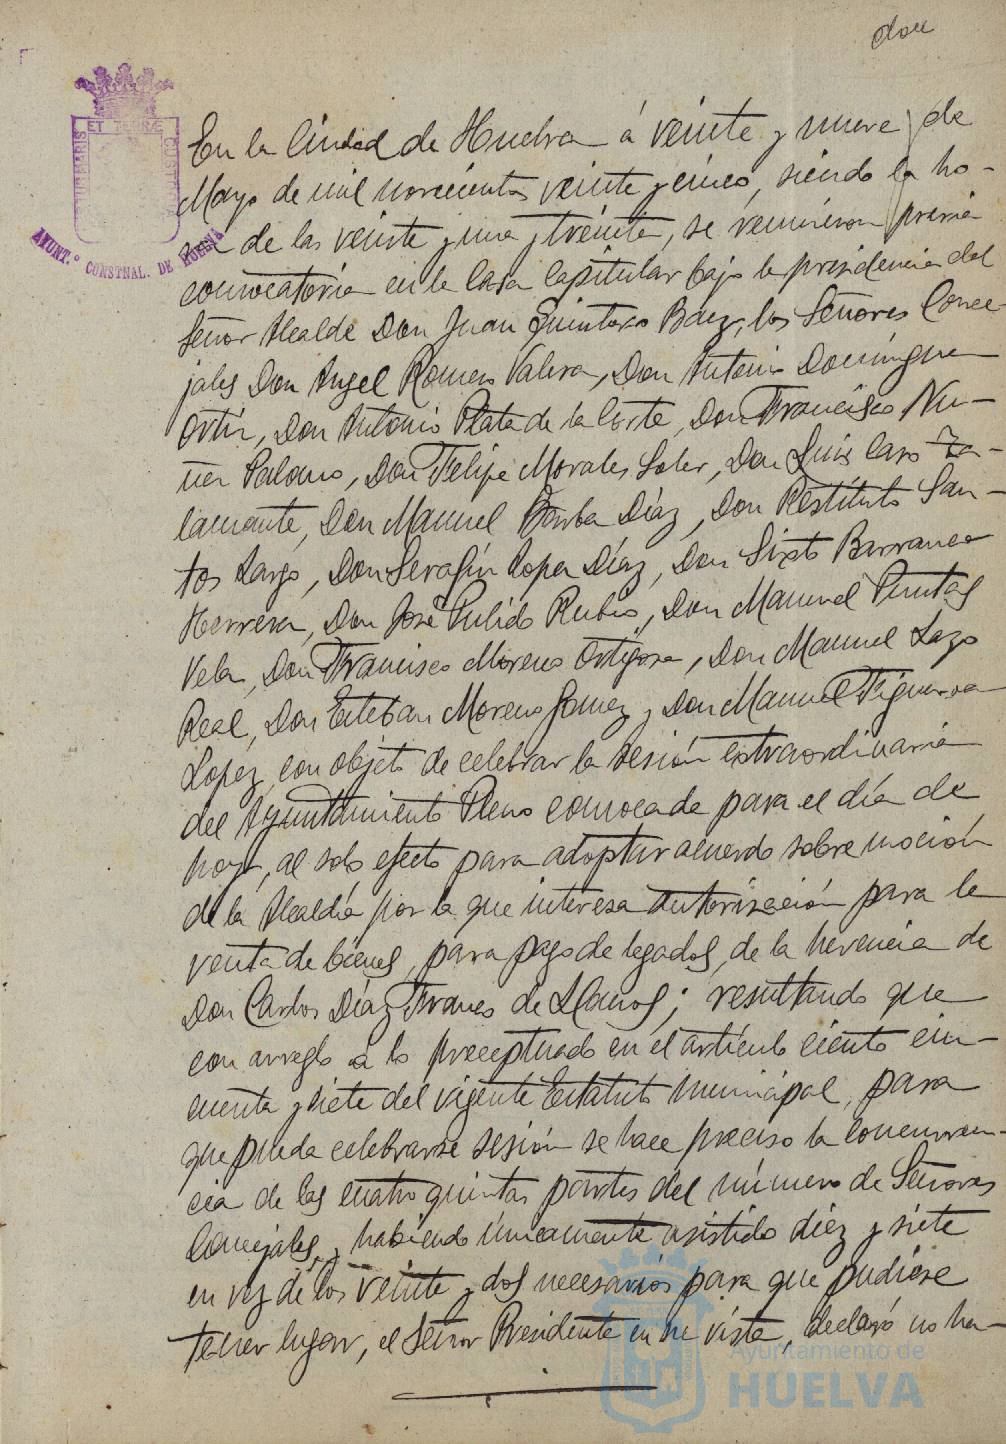 dou
ET TERRÆ
MARIS
CUSTO
AYUNT.º CONSTNAL. DE HUELVA
En la Ciudad de Huelva á veinte y nueve de
Mayo de mil novecientos veinte y cinco, siendo la ho-
ra de las veinte y una y treinta, se reunieron previa
convocatoria en la Casa Capitular bajo la presidencia del
Señor Alcalde Don Juan Quintero Baez, los Señores Conce-
jales Don Angel Romero Valera, Don Antonio Dominguez
Ortiz, Don Antonio Plata de la Corte, Don Francisco Nu-
ñez Palomo, Don Felipe Morales Soler, Don Luis Caro
lamante, Don Manuel Barba Díaz, Don Restituto San-
tos Largo, Don Serafín Lopez Díaz, Don Sixto Barranco
Herrera, Don José Pulido Rubio, Don Manuel Puntas
Vela, Don Francisco Moreno Ortigosa, Don Manuel Lazo
Real, Don Esteban Moreno Gomez y Don Manuel Figueroa
Lopez, con objeto de celebrar la sesión extraordinaria
del Ayuntamiento Pleno convocada para el día de
hoy, al solo efecto para adoptar acuerdo sobre moción
de la Alcaldía por la que interesa autorización para la
venta de bienes, para pago de legados, de la herencia de
Don Carlos Díaz Franco de Llanos; resultando que
con arreglo a lo preceptuado en el artículo ciento cin-
cuenta y siete del vigente Estatuto municipal, para
que pueda celebrarse sesión se hace preciso la concurren-
cia de las cuatro quintas partes del número de Señores
Concejales, y habiendo únicamente asistido diez y siete
en vez de los veinte y dos necesarios para que pudiese
tener lugar, el Señor Presidente en su vista, declaró no ha-
Ayuntamiento de
HUELVA